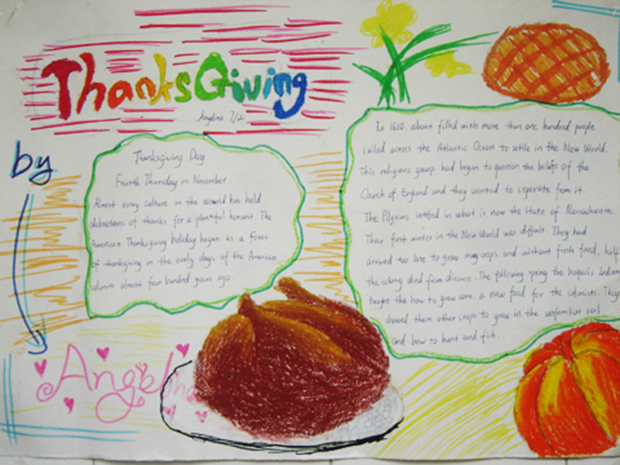 ThanksGiving
Angelina 7.2.
by
Angelina
Thanksgiving Day
Fourth Thursday in November
Almost every culture in the world has held
celebrations of thanks for a plentiful harvest. The
American Thanksgiving holiday began as a feast
of thanksgiving in the early days of the American
colonies almost four hundred years ago.
In 1620, about filled with more than one hundred people
sailed across the Atlantic Ocean to settle in the New World.
This religious group had begun to question the beliefs of the
Church of England and they wanted to separate from it.
The Pilgrims settled in what is now the state of Massachusetts.
Their first winter in the New World was difficult. They had
arrived too late to grow many crops, and without fresh food, half
the colony died from disease. The following spring the Iroquois Indians
taught the how to grow corn, a new food for the colonists. They
showed them other crops to grow in the unfamiliar soil
and how to hunt and fish.